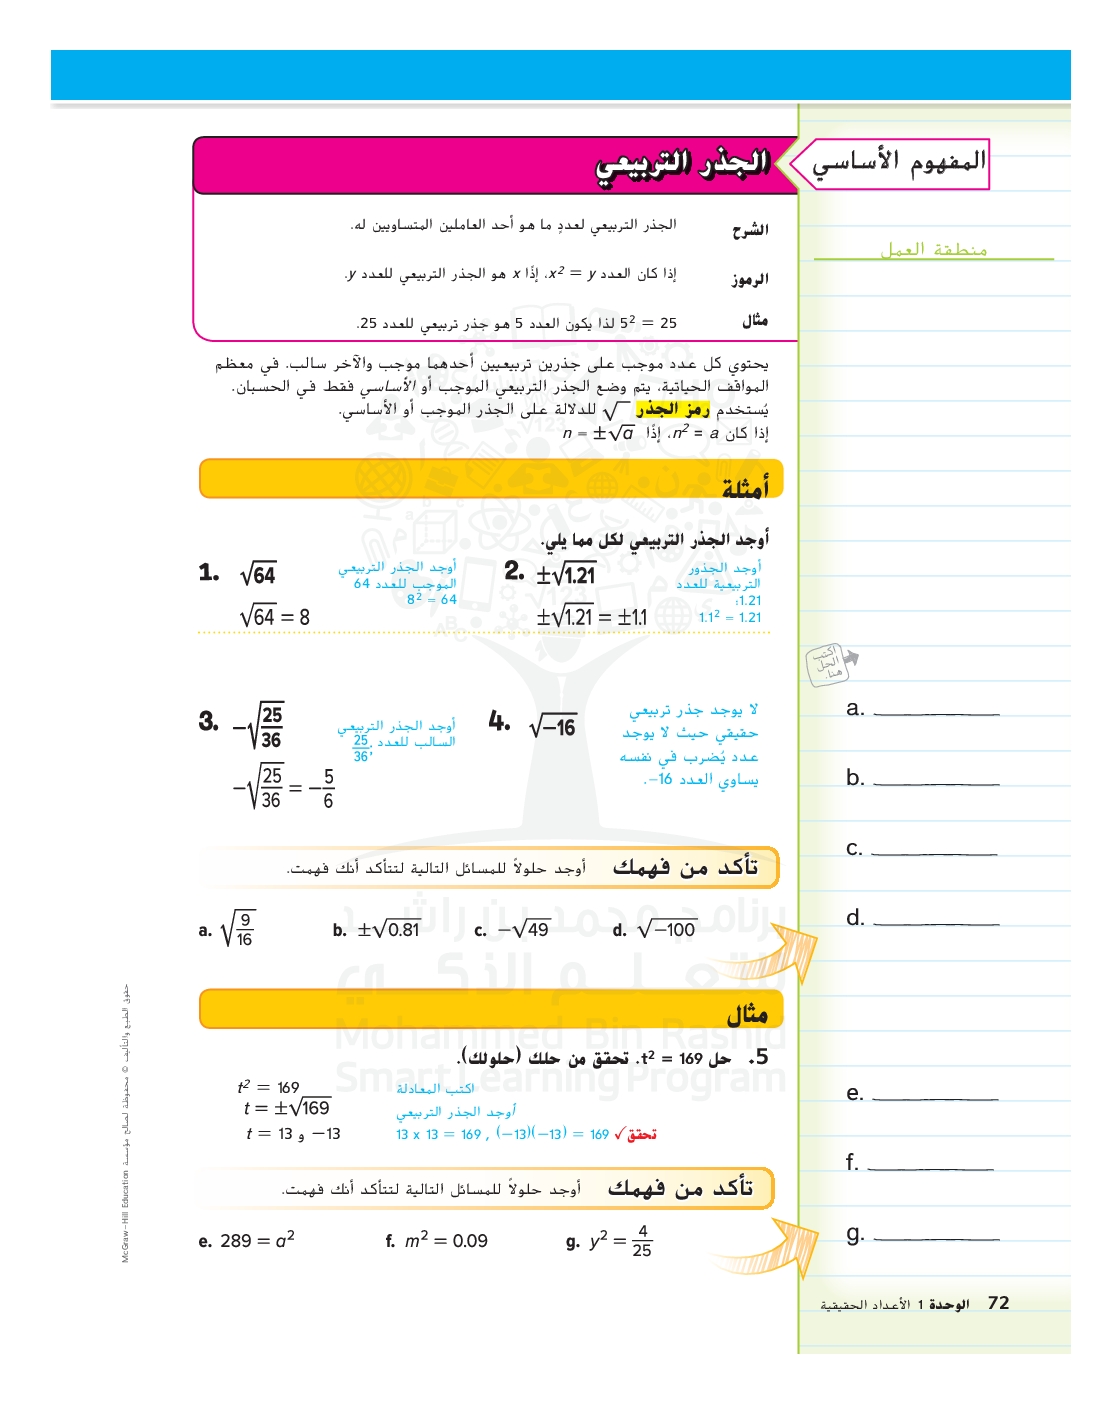 المفهوم الأساسي
الجذر التربيعي
الشرح الجذر التربيعي لعددٍ ما هو أحد العاملين المتساويين له.
الرموز إذا كان العدد x² = y، إذًا x هو الجذر التربيعي للعدد y.
مثال 5² = 25 لذا يكون العدد 5 هو جذر تربيعي للعدد 25.
منطقة العمل
يحتوي كل عدد موجب على جذرين تربيعيين أحدهما موجب والآخر سالب. في معظم
المواقف الحياتية، يتم وضع الجذر التربيعي الموجب أو الأساسي فقط في الحسبان.
يُستخدم رمز الجذر √ للدلالة على الجذر الموجب أو الأساسي.
إذا كان n² = a، إذًا n = ±√a
أمثلة
أوجد الجذر التربيعي لكل مما يلي.
1. √64
أوجد الجذر التربيعي
الموجب للعدد 64
8² = 64
√64 = 8
2. ±√1.21
أوجد الجذور
التربيعية للعدد
1.21:
1.1² = 1.21
±√1.21 = ±1.1
3. −√25/36
أوجد الجذر التربيعي
السالب للعدد 25/36;
−√25/36 = −5/6
4. √−16
لا يوجد جذر تربيعي
حقيقي حيث لا يوجد
عدد يُضرب في نفسه
يساوي العدد 16−.
اكتب
الحل
هنا.
a.
b.
c.
d.
تأكد من فهمك أوجد حلولاً للمسائل التالية لتتأكد أنك فهمت.
a. √9/16 b. ±√0.81 c. −√49 d. √−100
مثال
5. حل t² = 169. تحقق من حلك (حلولك).
t² = 169 اكتب المعادلة
t = ±√169 أوجد الجذر التربيعي
t = 13 و −13 13 x 13 = 169 , (−13)(−13) = 169 ✓تحقق
تأكد من فهمك أوجد حلولاً للمسائل التالية لتتأكد أنك فهمت.
e. 289 = a² f. m² = 0.09 g. y² = 4/25
e.
f.
g.
72 الوحدة 1 الأعداد الحقيقية
حقوق الطبع والتأليف © محفوظة لصالح مؤسسة McGraw-Hill Education
برنامج محمد بن راشد
للتعلم الذكي
Mohammed Bin Rashid
Smart Learning Program